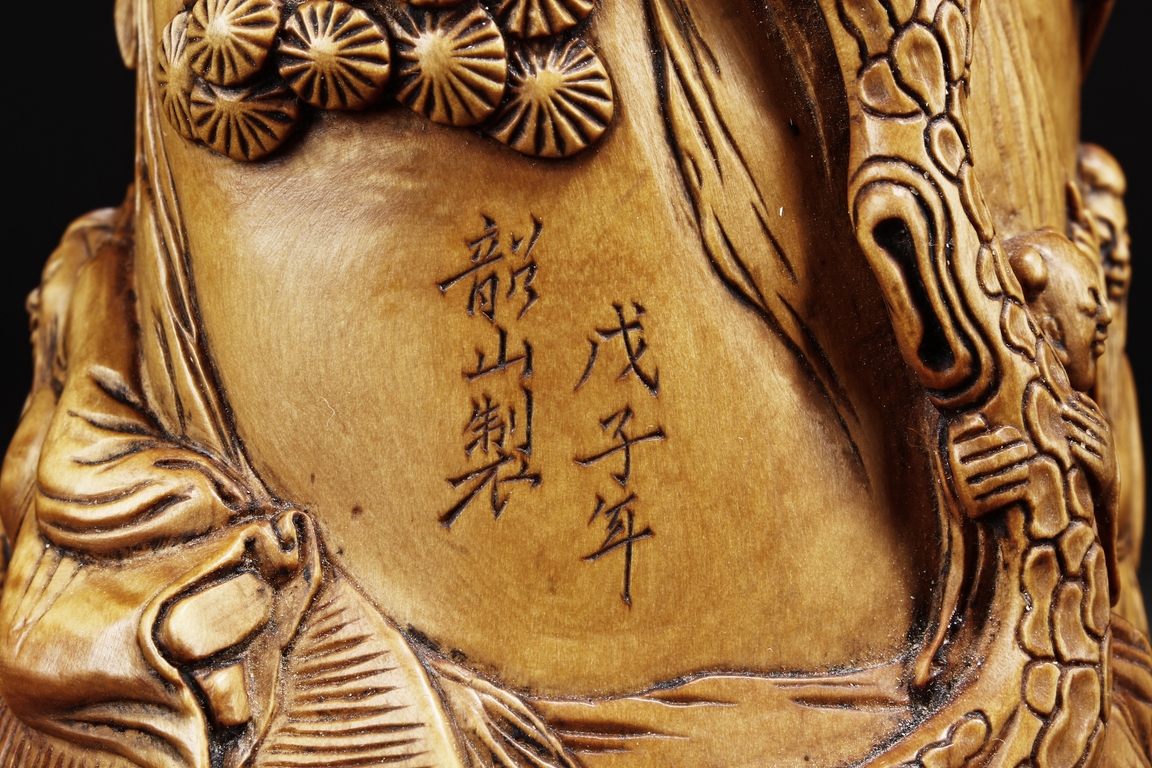 戊子年
韶山製